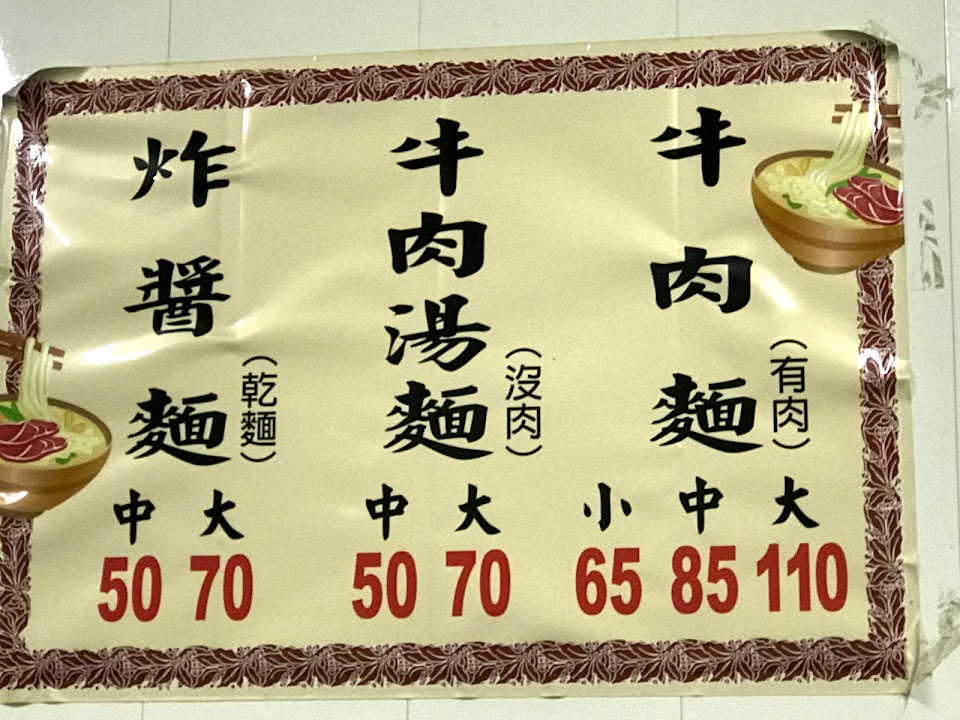 牛肉麵
（有肉）
小 中 大
65 85 110
牛肉湯麵
（沒肉）
中 大
50 70
炸醬麵
（乾麵）
中 大
50 70